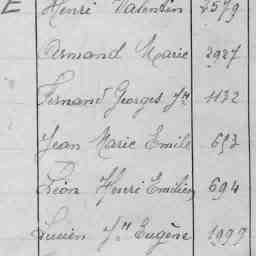 E Henri Valentin 2579
Armand Marie 2927
Fernand Georges Jh 1132
Jean Marie Emile 653
Léon Henri Emilien 694
Lucien Jh Eugène 1999